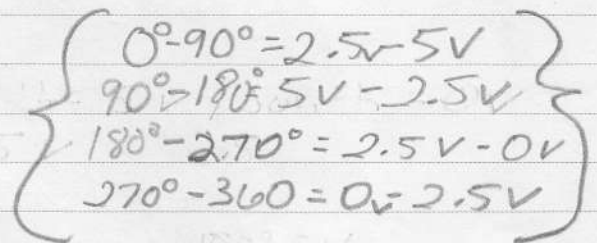 0°-90° = 2.5v-5V
90°-180° 5V - 2.5V
180°-270° = 2.5V - 0V
270°-360 = 0v-2.5V